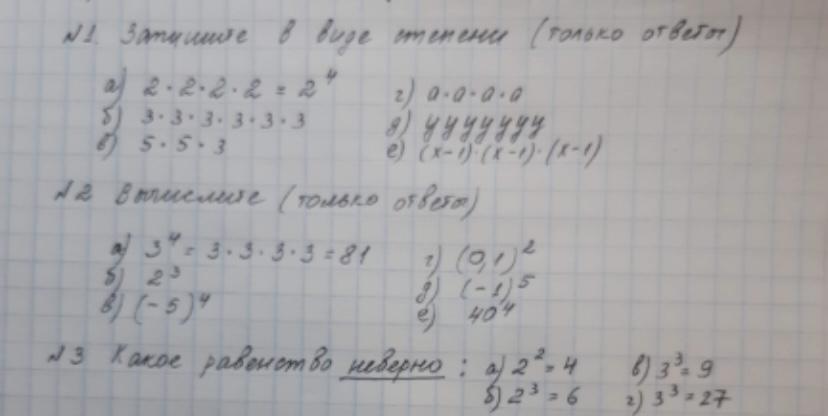 №1. Запишите в виде степени (только ответы)
а) 2·2·2·2 = 2⁴ г) a·a·a·a
б) 3·3·3·3·3·3 д) yyyyyyy
в) 5·5·3 е) (x-1)·(x-1)·(x-1)
№2 Вычислите (только ответы)
а) 3⁴ = 3·3·3·3 = 81 г) (0,1)²
б) 2³ д) (-1)⁵
в) (-5)⁴ е) 40⁴
№3 Какое равенство неверно: а) 2² = 4 в) 3³ = 9
б) 2³ = 6 г) 3³ = 27